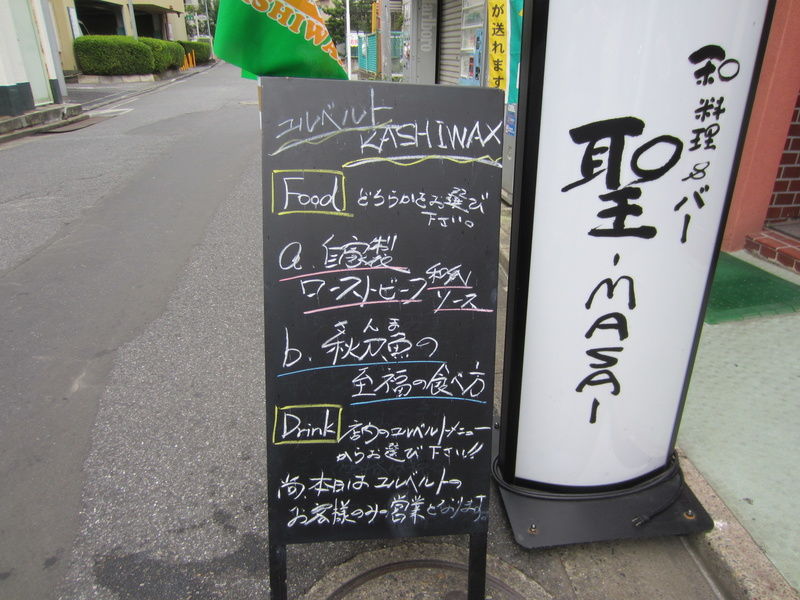 ユルベルト
KASHIWAX
Food どちらかをお選び
下さい。
a. 自家製
ローストビーフ 和風
ソース
さんま
b. 秋刀魚の
至福の食べ方
Drink 店内のユルベルトメニュー
からお選び下さい!!
尚、本日はユルベルトの
お客様のみの営業となります。
和料理&バー
聖
-MASA-
が送れます